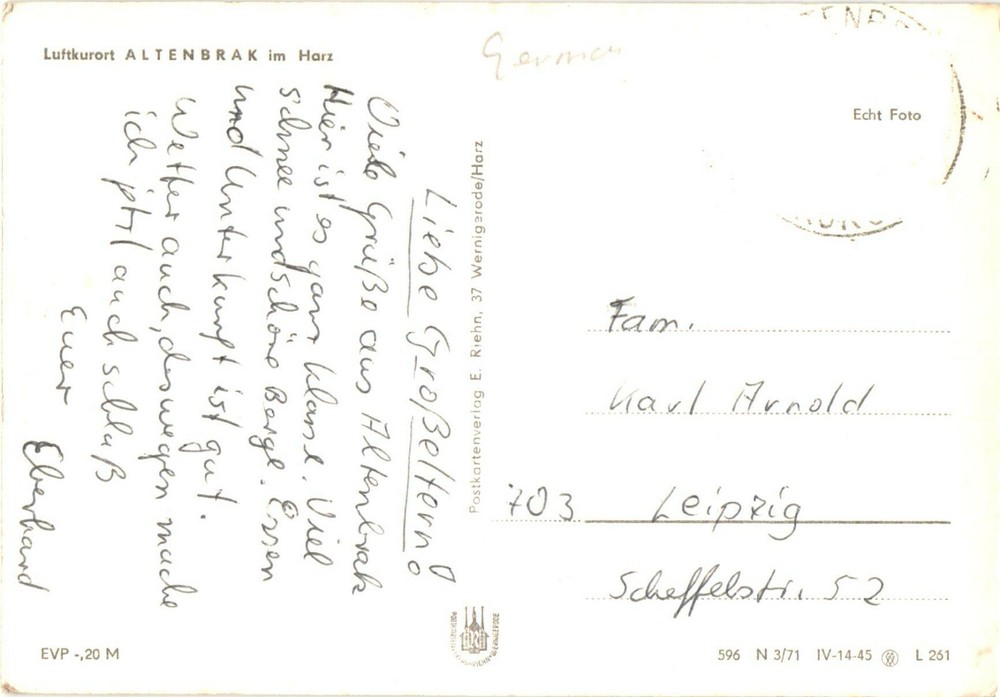 Luftkurort ALTENBRAK im Harz
Liebe Großeltern!
Viele Grüße aus Altenbrak
Hier ist es ganz klasse. Viel
Schnee und schöne Berge. Essen
und Unterkunft ist gut.
Wetter auch, deswegen mache
ich jetzt auch schluß
Euer
Eberhard
EVP -,20 M
Postkartenverlag E. Riehn, 37 Wernigerode/Harz
German
Echt Foto
Fam.
Karl Arnold
703 Leipzig
Scheffelstr. 52
596 N 3/71 IV-14-45 L 261